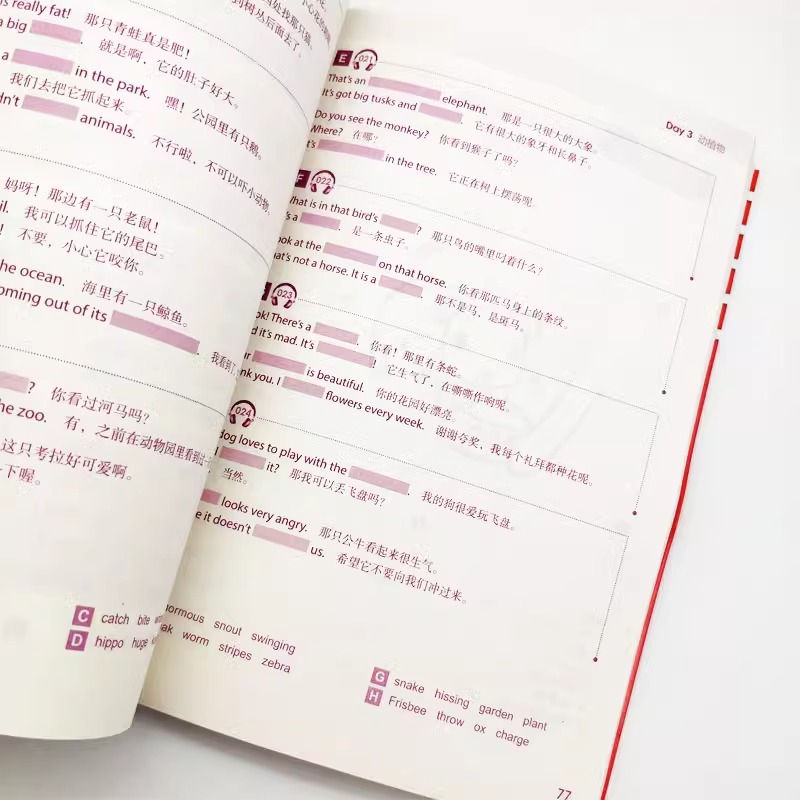 is really fat! 那只青蛙真是肥！
a big . 就是啊，它的肚子好大。
a in the park. 嘿！公园里有只鹅。
我们去把它抓起来。
dn't animals. 不行啦，不可以吓小动物。
到树丛后面去了。
妈呀！那边有一只老鼠！
il. 我可以抓住它的尾巴。
! 不要，小心它咬你。
he ocean. 海里有一只鲸鱼。
oming out of its . 我看到了
? 你看过河马吗？
he zoo. 有，之前在动物园里看到过
这只考拉好可爱啊。
一下喔。
C catch bite
D hippo huge
Day 3 动植物
E 021
That's an elephant. 那是一只很大的大象。
It's got big tusks and . 它有很大的象牙和长鼻子。
Do you see the monkey? 你看到猴子了吗？
Where? 在哪？
t's in the tree. 它正在树上摆荡呢。
F 022
What is in that bird's ? 那只鸟的嘴里叼着什么？
's a . 是一条虫子。
ok at the on that horse. 你看那匹马身上的条纹。
at's not a horse. It is a . 那不是马，是斑马。
023
ok! There's a . 你看！那里有条蛇。
d it's mad. It's ! 它生气了，在嘶嘶作响呢。
ur is beautiful. 你的花园好漂亮。
nk you. I flowers every week. 谢谢夸奖，我每个礼拜都种花呢。
024
dog loves to play with the . 我的狗很爱玩飞盘。
I it? 那我可以丢飞盘吗？
当然。
looks very angry. 那只公牛看起来很生气。
e it doesn't us. 希望它不要向我们冲过来。
ormous snout swinging
ak worm stripes zebra
G snake hissing garden plant
H Frisbee throw ox charge
77